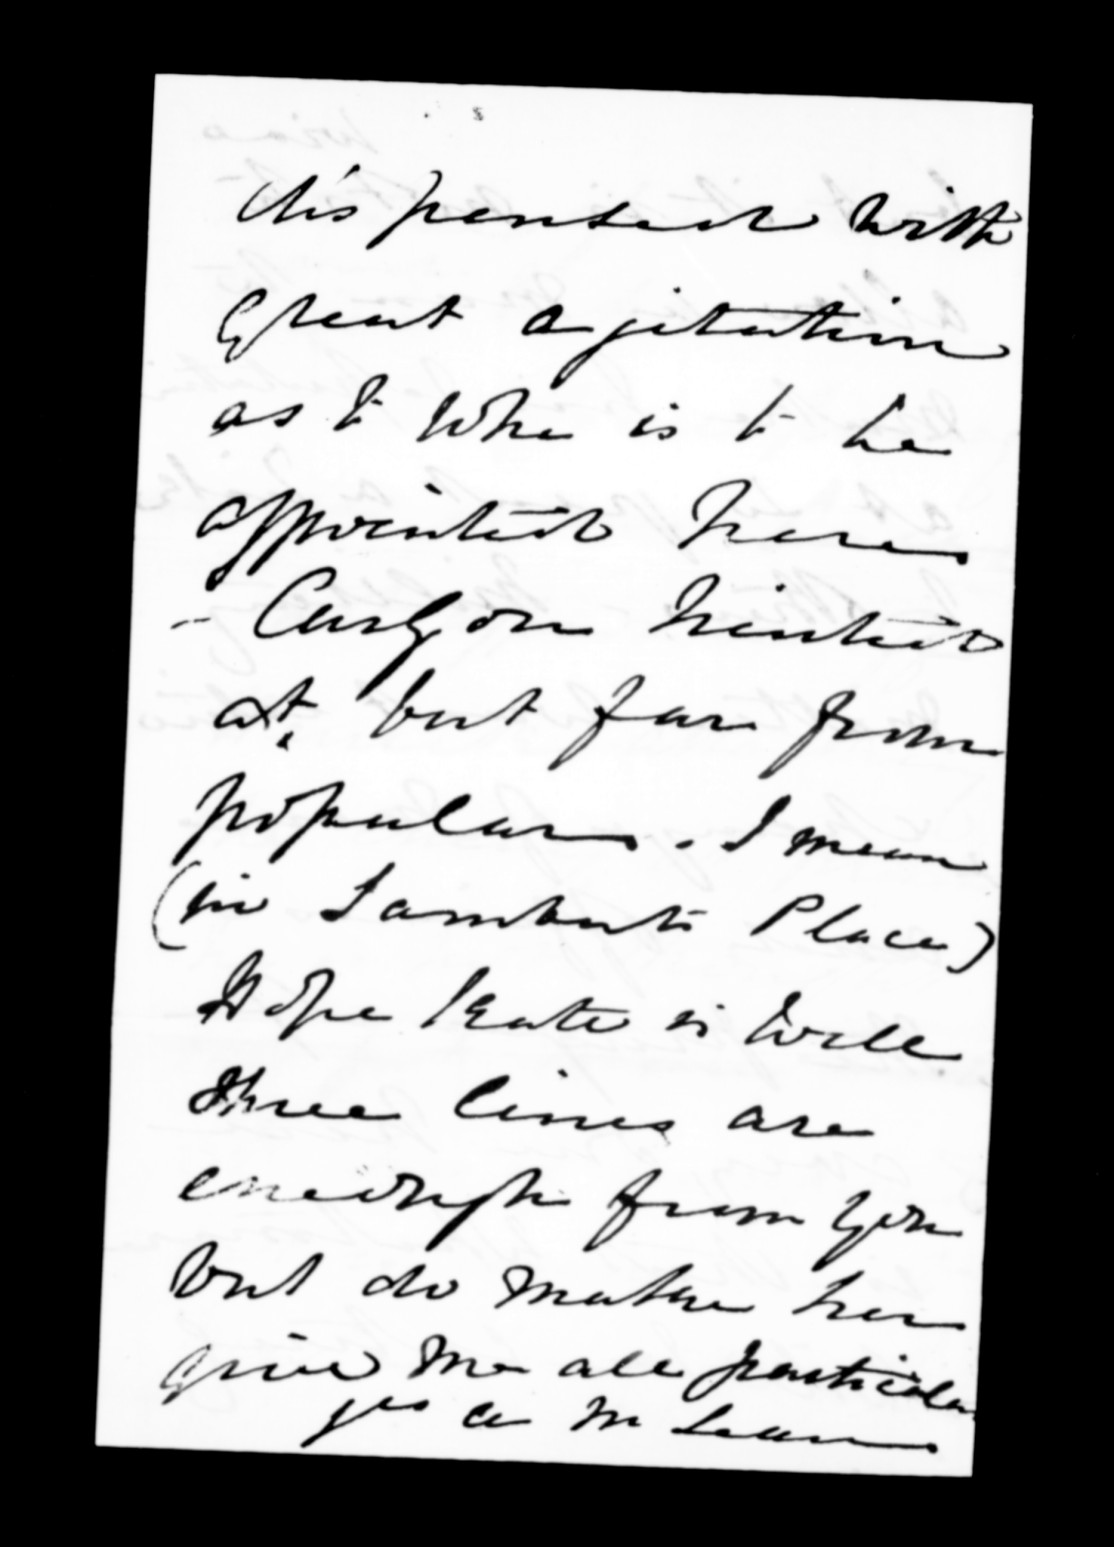 dispensed with
great agitation
as to who is to be
appointed here
- Curgon hinted
at, but far from
popular. I mean
(in Lamberts Place)
Hope Kate is well
three lines are
enough from you
but do make her
give me all particular
yrs A McLean